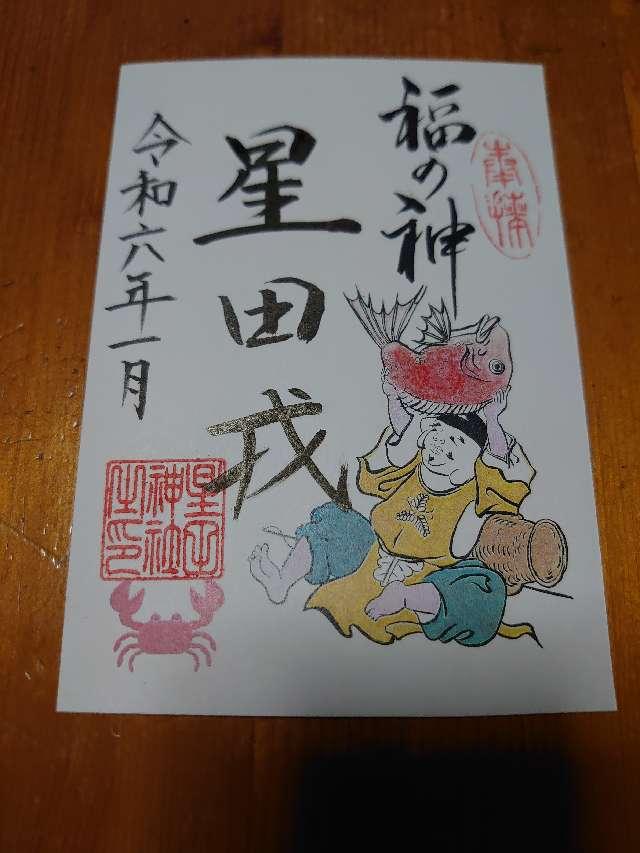 奉拝
福の神
星田戎
令和六年一月
星田
神社
之印